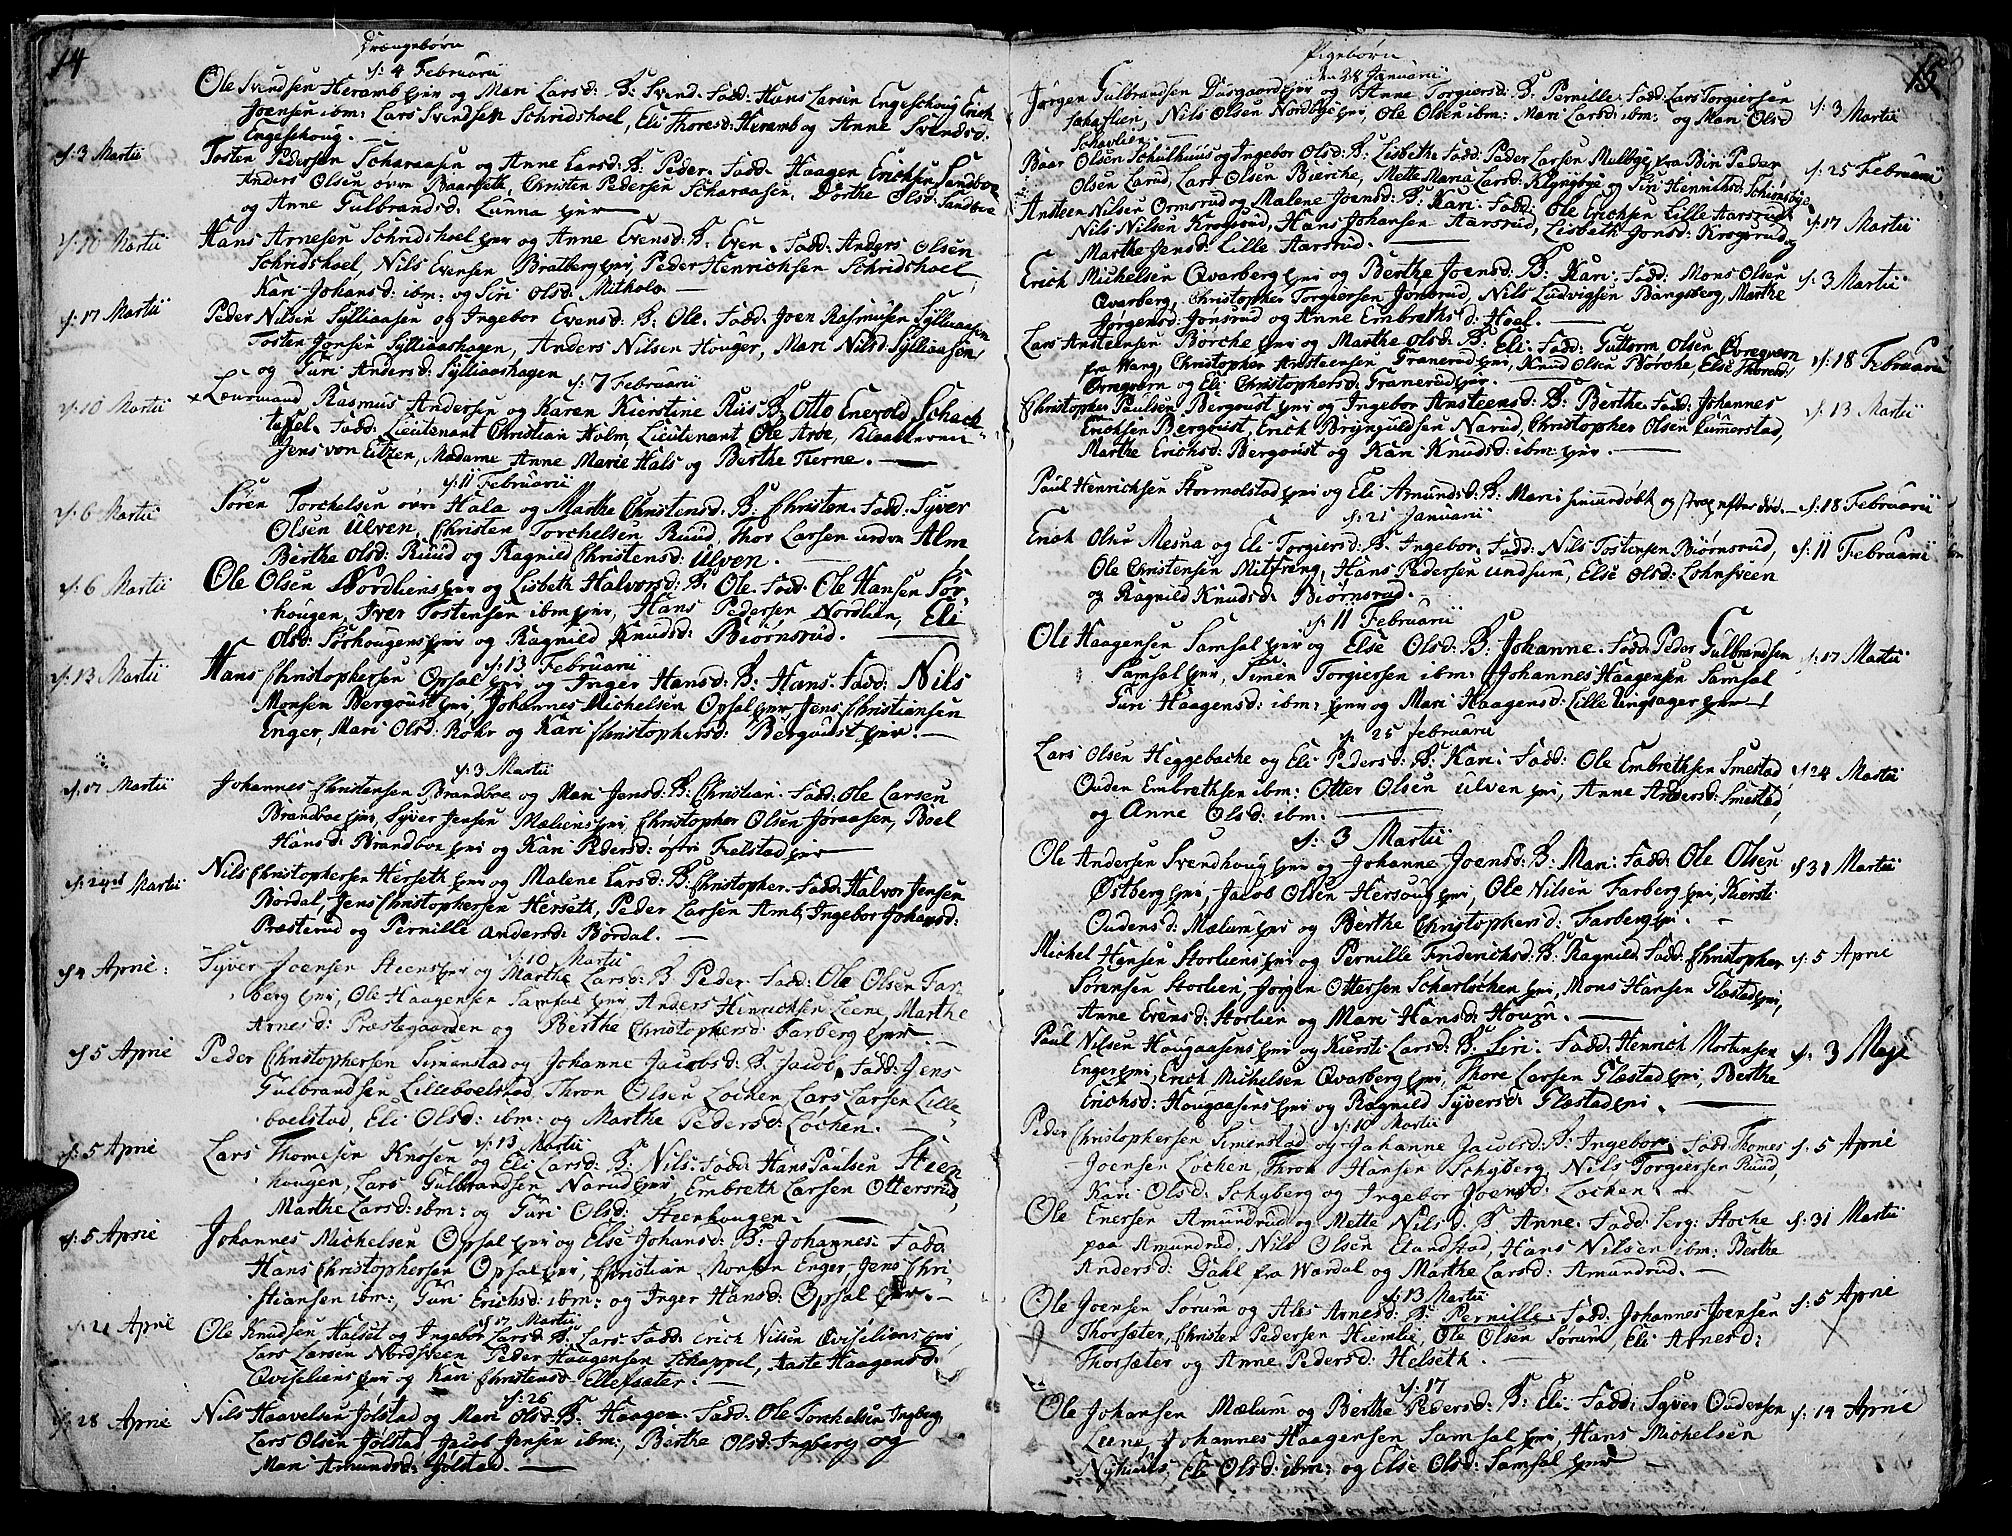 14
Drængebørn
d: 4 Februarii
Ole Svendsen Heramb og Mari Larsd: B: Svend. Fadd: Hans Larsen Engeschoug Erich
Joensen ibm: Lars Svendsen Schridshoel, Eli Thoresd: Heramb og Anne Svendsd:
Engeschoug.
d: 3 Martii
Tosten Pedersen Scharaasen og Anne Larsd: B: Peder. Fadd: Haagen Erichsen Sandboe
Anders Olsen övre Baarseth, Christen Pedersen Scharaasen, Dorthe Olsd: Sandboe
og Anne Gulbrandsd: Lunna
d: 10 Martii
Hans Arnesen Schridshoel og Anne Evensd: B: Even. Fadd: Anders Olsen
Schridshoel, Nils Evensen Bratberg, Peder Henrichsen Schridshoel
Kari Johansd: ibm: og Siri Olsd: Mitholo.
d: 17 Martii
Peder Nilsen Sylliaasen og Ingebor Evensd: B: Ole. Fadd: Joen Rasmusen Sylliaasen
Tosten Jonsen Sylliaashagen, Anders Nilsen Houger, Mari Nilsd: Sylliaasen,
og Turi Andersd: Sylliaashagen
d: 7 Februarii
d: 10 Martii
Rasmus Andersen og Karen Kierstine Riis B: Otto Enevold Schach
Fadd: Lieutenant Christian Holm, Lieutenant Ole Aröe,
Jens von Eitzen, Madame Anne Marie Hals og Berthe Tierne.
d: 11 Februarii
d: 6 Martii
Sören Torchelsen övre Hala og Marthe Christensd: B: Christen. Fadd: Syver
Olsen Ulven, Christen Torchelsen Ruud, Thor Larsen undre Alm
Berthe Olsd: Ruud og Ragnild Christensd: Ulven.
d: 6 Martii
Ole Olsen Nordliens og Lisbeth Halvorsd: B: Ole. Fadd: Ole Hansen Sör-
hougen, Iver Tostensen ibm, Hans Pedersen Nordlien, Eli
Olsd: Sörhougens og Ragnild Knudsd: Biörnsrud.
d: 13 Februarii
d: 13 Martii
Hans Christophersen Opsal og Inger Hansd: B: Hans. Fadd: Nils
Monsen Bergoust, Johannes Michelsen Opsal, Jens Christiansen
Enger, Mari Olsd: Rohr og Kari Christophersd: Bergoust.
d: 3 Martii
d: 17 Martii
Johannes Christensen Brandboe og Mari Jensd: B: Christian. Fadd: Ole Larsen
Brandboe, Syver Jensen Mæliens, Christopher Olsen Jöraasen, Boel
Hansd: Brandboe og Kari Pedersd: Fielstad
d: 24 Martii
Nils Christophersen Herseth og Malene Larsd: B: Christopher. Fadd: Halvor Jensen
Bördal, Jens Christophersen Herseth, Peder Larsen Amb, Ingebor Johansd:
Præsterud og Pernille Andersd: Bördal.
d: 10 Martii
d 4 Aprie:
Syver Joensen Steens og Marthe Larsd: B: Peder. Fadd: Ole Olsen Far-
berg, Ole Haagensen Samsal, Anders Henrichsen Leene, Marthe
Arnesd: Præstegaarden og Berthe Christophersd: Farberg.
d 5 Aprie
Peder Christophersen Simenstad og Johanne Jacobsd: B: Jacob. Fadd: Jens
Gulbrandsen Lilleboelstad, Thron Olsen Lochen, Lars Larsen Lille-
boelstad, Eli Olsd: ibm: og Marthe Pedersd: Löchen.
d: 13 Martii
d: 5 Aprie
Lars Thomesen Knosen og Eli Larsd: B: Nils. Fadd: Hans Paulsen Steen
hougen, Lars Gulbrandsen Narud, Embreth Larsen Ottersrud,
Marthe Larsd: ibm: og Turi Olsd: Steenhougen.
d: 5 Aprie
Johannes Michelsen Opsal og Else Johansd: B: Johannes. Fadd:
Hans Christophersen Opsal, Christian Monsen Enger, Jens Chri-
stiansen ibm:, Turi Erichsd: ibm: og Inger Hansd: Opsal.
d 17 Martii
d: 21 Aprie
Ole Knudsen Halset og Ingebor Larsd: B: Lars. Fadd: Erich Nilsen Qvisliens,
Lars Larsen Nordsveen, Peder Haagensen Schappel, Aaste Haagensd:
Qvisliens og Kari Christensd: Ellefsæter.
d: 26
d: 28 Aprie
Nils Haavelsen Jölstad og Mari Olsd: B: Haagen. Fadd: Ole Torchelsen Ingberg,
Lars Olsen Jölstad, Jacob Jensen ibm:, Berthe Olsd: Ingberg og
Mari Amundsd: Jölstad.
15
Pigebörn
den 28 Januarii
Jörgen Gulbrandsen Dasgaard og Anne Torgiersd: B: Pernille. Fadd: Lars Torgiersen
Schaslien, Nils Olsen Nordbye, Ole Olsen ibm: Mari Larsd: ibm: og Mari Olsd
Schavlien
d: 3 Martii
Baar Olsen Schulhuus og Ingebor Olsd: B: Lisbeth. Fadd: Peder Larsen Mulbye fra Biri, Peder
Olsen Larud, Lars Olsen Bierche, Mette Maria Larsd: Klyngbye og Siri Henrichsd: Schiönsbye
d: 25 Februarii
Ansteen Nilsen Ormsrud og Malene Joensd: B: Kari. Fadd: Ole Erichsen Lille Aarsrud
Nils Nilsen Krogsrud, Hans Johansen Aarsrud, Lisbeth Jonsd: Krogsrud og
Marthe Jensd: Lille Aarsrud.
d: 17 Martii
Erich Michelsen Qvarberg og Berthe Joensd: B: Kari. Fadd: Mons Olsen
Qvarberg, Christopher Torgiersen Jönsrud, Nils Ludvigsen Bangsberg, Marthe
Jörgensd: Jönsrud og Anne Embrethsd: Hoel.
d: 3 Martii
Lars Ansteensen Börche og Marthe Olsd: B: Eli. Fadd: Guttorm Olsen Övregvern
fra Wang, Christopher Ansteensen Franerud, Knud Olsen Börche, Else Thoresd:
og Eli Christophersd: Franerud.
d: 18 Februarii
Christopher Paulsen Bergoust og Ingebor Ansteensd: B: Berthe. Fadd: Johannes
Erichsen Bergoust, Erich Brynguldsen Narud, Christopher Olsen Lummerstad,
Marthe Erichsd: Bergoust og Kari Knudsd: ibm:
d: 13 Martii
Paul Henrichsen Stormolstad og Eli Amundsd: B: Mari hiemmedöbt og strax efter död.
d: 18 Februarii
d: 21 Januarii
Erich Olsen Mesna og Eli Torgiersd: B: Ingebor. Fadd: Nils Tostensen Biörnsrud,
Ole Christensen Mitfreng, Hans Pedersen Undsum, Else Olsd: Lohnsveen
og Ragnild Knudsd: Biörnsrud.
d: 11 Februarii
d: 11 Februarii
Ole Haagensen Samsal og Else Olsd: B: Johanne. Fadd: Peder Gulbrandsen
Samsal, Simen Torgiersen ibm: Johannes Haagensen Samsal
Turi Haagensd: ibm: og Mari Haagensd: Lille Ringsager
d: 17 Martii
d: 25 Februarii
Lars Olsen Heggebache og Eli Pedersd: B: Kari. Fadd: Ole Embrethsen Smestad
Ouden Embrethsen ibm: Otter Olsen Ulven, Anne Andersd: Smestad,
og Anne Olsd: ibm:
d 24 Martii
d: 3 Martii
Ole Andersen Svendhoug og Johanne Joensd: B: Mari. Fadd: Ole Olsen
Östberg, Jacob Olsen Hersoug, Ole Nilsen Farberg, Kiersti
Oudensd: Mælum og Berthe Christophersd: Farberg.
d 31 Martii
Michel Hansen Storliens og Pernille Friderichsd: B: Ragnild. Fadd: Christopher
Sörensen Storlien, Jörgen Ottersen Scherlöchen, Mons Hansen Flæstad,
Anne Evensd: Storlien og Mari Hansd: Houm.
d: 5 Aprie
Paul Nilsen Hougaasens og Kiersti Larsd: B: Siri. Fadd: Henrich Mortensen
Enger, Erich Michelsen Qvarberg, Thore Larsen Flæstad, Berthe
Erichsd: Hougaasens og Ragnild Syversd: Flæstad.
d: 3 Maji
d: 10 Martii
Peder Christophersen Simenstad og Johanne Jacobsd: B: Ingebor. Fadd: Thomes
Joensen Lochen, Thron Hansen Schyberg, Nils Torgiersen Ruud,
Kari Olsd: Schyberg og Ingebor Joensd: Lochen.
d: 5 Aprie
Ole Enersen Amundrud og Mette Nilsd: B: Anne. Fadd: Serg: Stoche
paa Amundrud, Nils Olsen Elandstad, Hans Nilsen ibm: Berthe
Andersd: Dahl fra Wardal og Marthe Larsd: Amundrud.
d: 31 Martii
d: 13 Martii
Ole Joensen Sorum og Ales Arnesd: B: Pernille. Fadd: Johannes Joensen
Thorsæter, Christen Pedersen Hiemlie, Ole Olsen Sorum, Eli Arnesd:
Thorsæter og Anne Pedersd: Helseth.
d: 5 Aprie
d: 17
Ole Johansen Mælum og Berthe Pedersd: B: Eli. Fadd: Syver Oudensen
Leene, Johannes Haagensen Samsal, Hans Michelsen
Nyhuus, Eli Olsd: ibm: og Else Olsd: Samsal
d: 14 Aprie